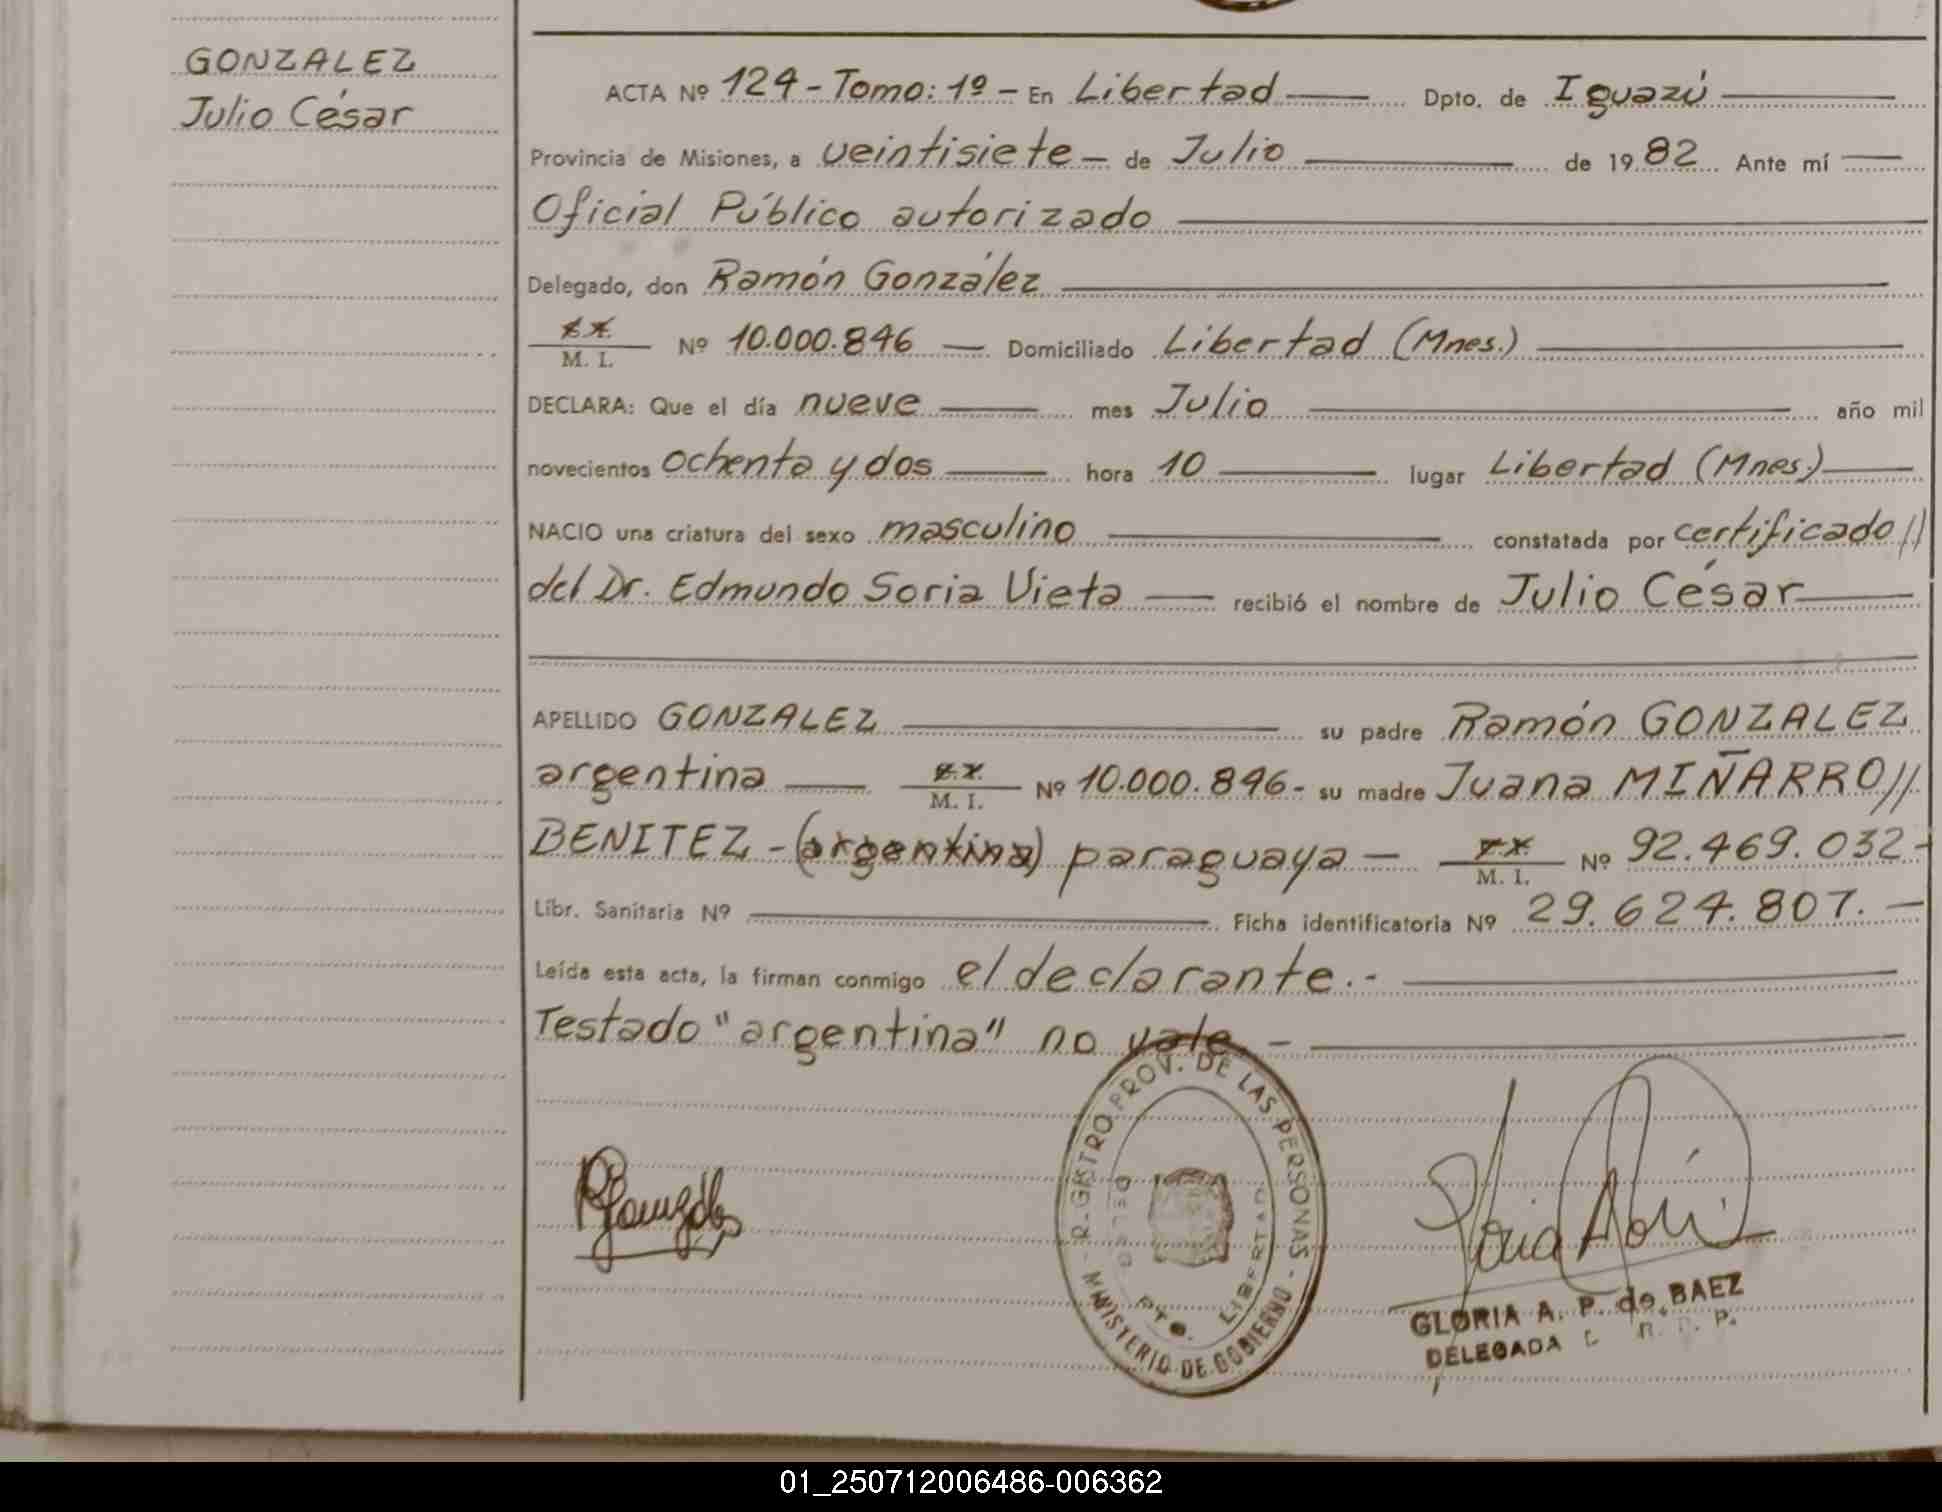 GONZALEZ
Julio César
ACTA Nº 124 - Tomo: 1º - En Libertad Dpto. de Iguazú
Provincia de Misiones, a veintisiete - de Julio de 1982 Ante mí
Oficial Público autorizado
Delegado, don Ramón González
M. I. Nº 10.000.846 Domiciliado Libertad (Mnes.)
DECLARA: Que el día nueve mes Julio año mil
novecientos ochenta y dos hora 10 lugar Libertad (Mnes.)
NACIO una criatura del sexo masculino constatada por certificado //
del Dr. Edmundo Soria Vieta recibió el nombre de Julio César
APELLIDO GONZALEZ su padre Ramón GONZALEZ
argentina M. I. Nº 10.000.846- su madre Juana MIÑARRO //
BENITEZ - (argentina) paraguaya - M. I. Nº 92.469.032-
Libr. Sanitaria Nº Ficha identificatoria Nº 29.624.807. -
Leída esta acta, la firman conmigo el declarante. -
Testado "argentina" no vale. -
R-GISTRO PROV. DE LAS PERSONAS - MINISTERIO DE GOBIERNO
PTO. LIBERTAD
GLORIA A. P. de BAEZ
DELEGADA R. P. P.
01_250712006486-006362